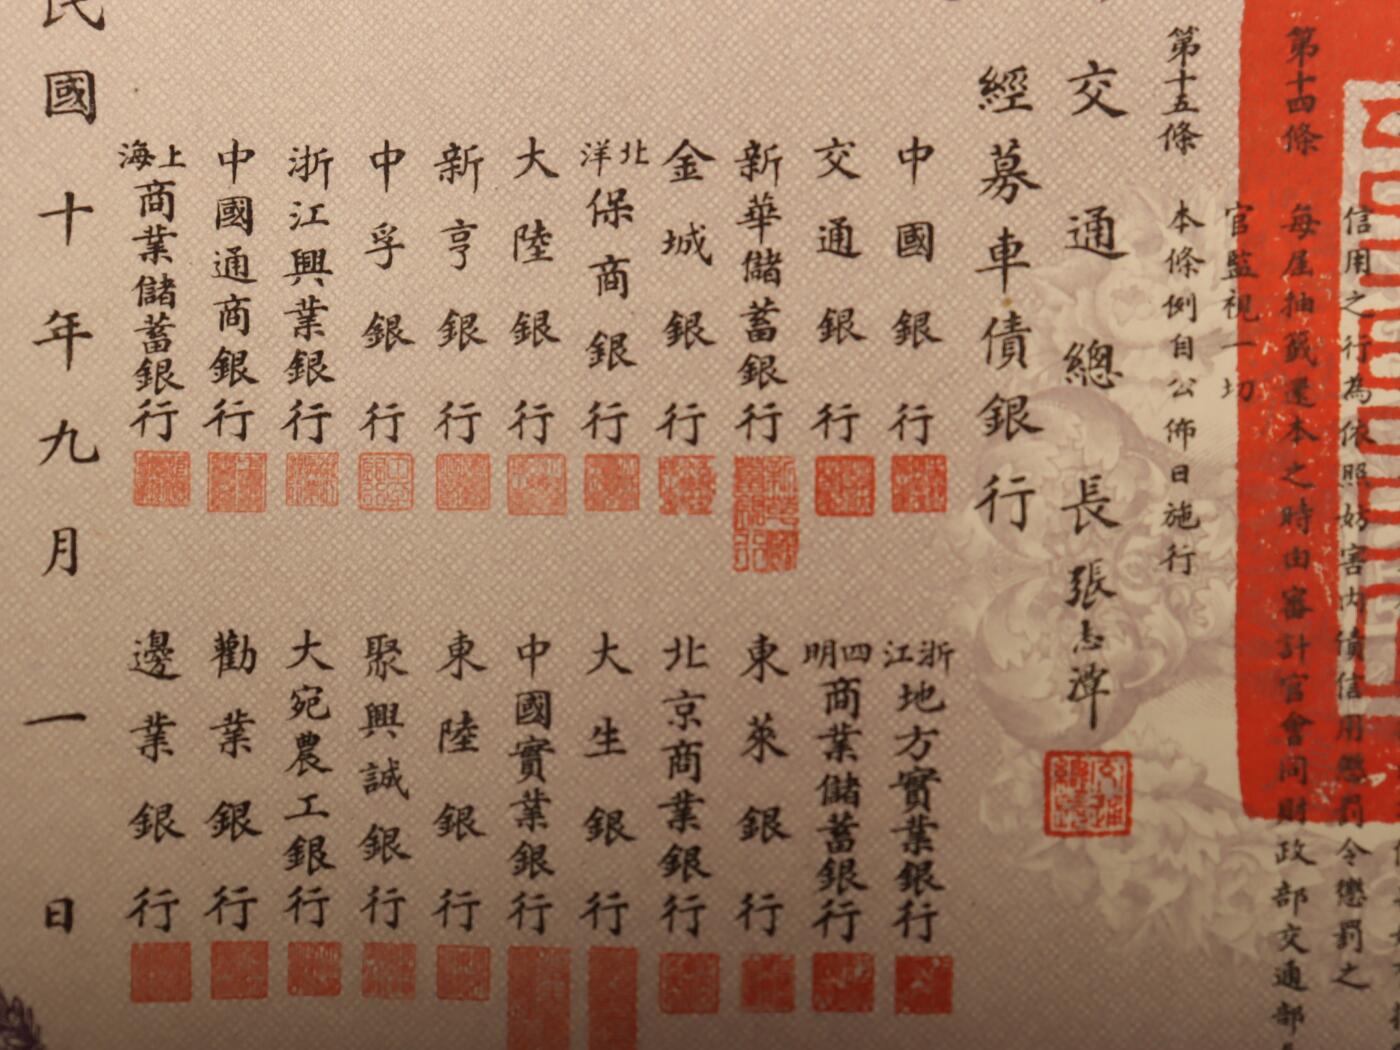 信用之行為依照妨害內債信用懲罰令懲罰之
第十四條 每屆抽籤還本之時由審計官會同財政部交通部
官監視一切
第十五條 本條例自公佈日施行
交通總長張志潭
經募車債銀行
中國銀行
交通銀行
新華儲蓄銀行
金城銀行
北洋保商銀行
大陸銀行
新亨銀行
中孚銀行
浙江興業銀行
中國通商銀行
上海商業儲蓄銀行
浙江地方實業銀行
四明商業儲蓄銀行
東萊銀行
北京商業銀行
大生銀行
中國實業銀行
東陸銀行
聚興誠銀行
大宛農工銀行
勸業銀行
邊業銀行
民國十年九月一日